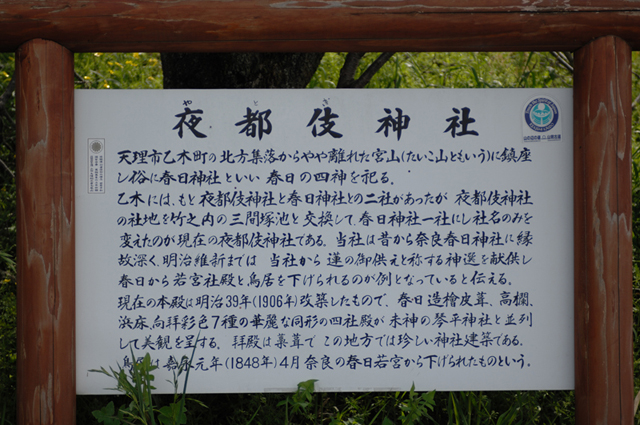 やとぎ
夜都伎神社
天理市乙木町の北方集落からやや離れた宮山(たいこ山ともいう)に鎮座
し俗に春日神社といい 春日の四神を祀る.
乙木には、もと夜都伎神社と春日神社との二社があったが 夜都伎神社
の社地を竹之内の三間塚池と交換して、春日神社一社にし社名のみを
変えたのが現在の夜都伎神社である. 当社は昔から奈良春日神社に縁
故深く、明治維新までは 当社から 蓮の御供えと称する神選を献供し
春日から若宮社殿と鳥居を下げられるのが例となっていると伝える.
現在の本殿は明治39年(1906年)改築したもので、春日造檜皮葺、高欄、
浜床、向拝彩色7種の華麗な同形の四社殿が 末神の琴平神社と並列
して美観を呈する. 拝殿は藁葺で この地方では珍しい神社建築である.
鳥居は嘉永元年(1848年)4月奈良の春日若宮から下げられたものという.